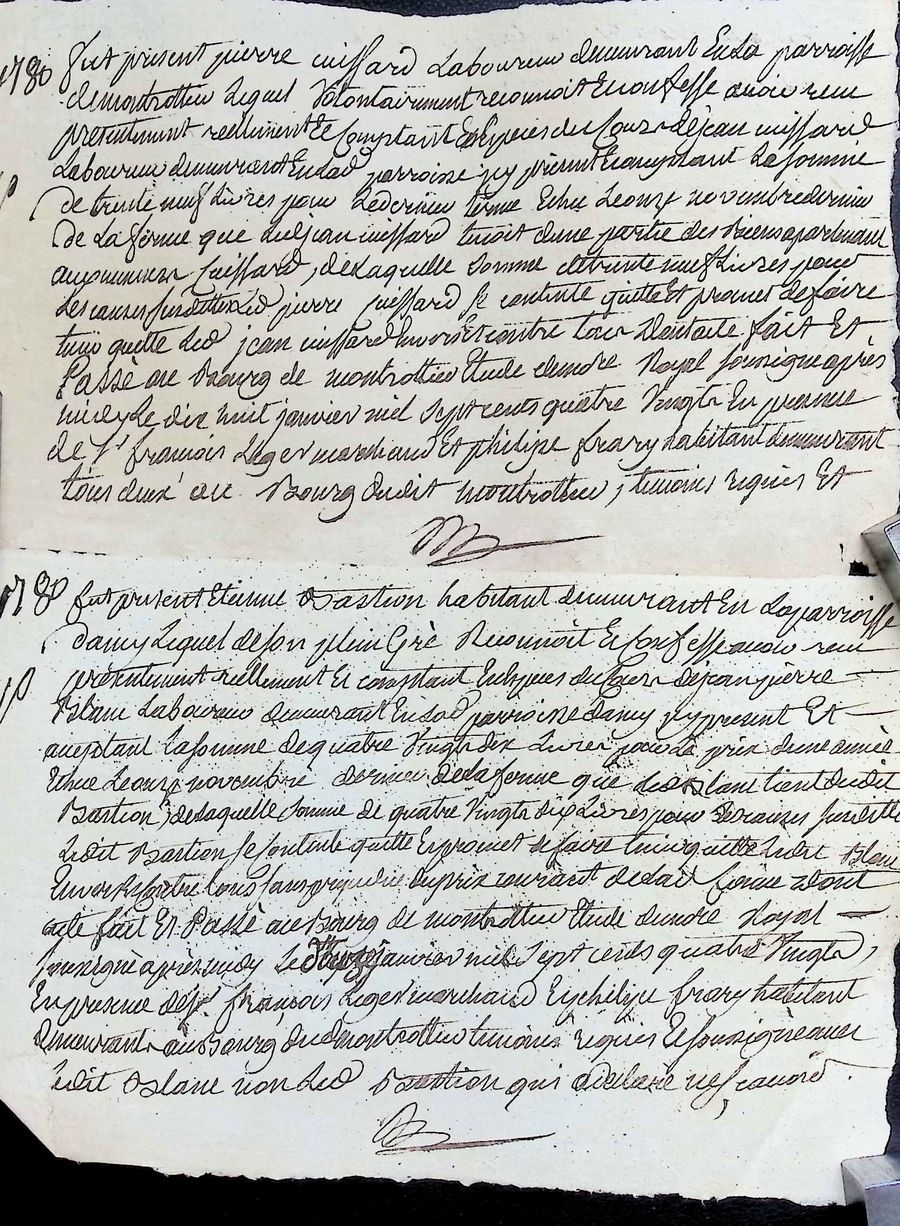 1780 fut present pierre cuissard Laboureur demeurant En La parroisse
de montrottier Lequel Volontairement reconnoit Et confesse avoir recu
presentement reellement Et Comptant En Especes du Cours de jean cuissard
Laboureur demeurant En Lad parroisse icy présent Et acceptant La somme
de trente neuf Livres pour Le dernier terme Echu Le onze novembre dernier
de La ferme que led jean cuissard tenoit d'une partie des Biens apartenant
au Cuissard, de Laquelle somme de trente neuf Livres pour
Les causes susdittes Led pierre cuissard se contente quitte Et promet de faire
tenir quitte Led jean cuissard Envers Et contre tous Dont acte fait Et
Passé au Bourg de montrottier Etude du nore Royal soussigné après
midy Le dix huit janvier mil sept cents quatre Vingts En presence
de Sr francois Leger marchand Et philipe frary habitant demeurant
tous deux au Bourg dudit montrottier, temoins requis Et
1780 fut present Etienne Bastion habitant demeurant En La parroisse
dancy Lequel de son plein Gré Reconnoit Et Confesse avoir recu
présentement reellement Et comptant En Especes du Cours de jean pierre
Blanc Laboureur demeurant En Lad parroisse dancy icy present Et
acceptant La somme de quatre Vingts dix Livres pour Le prix d'une année
Echue Le onze novembre dernier de La ferme que Led Blanc tient dudit
Bastion, de Laquelle somme de quatre Vingts dix Livres pour Les causes susdittes
Ledit Bastion se Contente quitte Et promet de faire tenir quitte Ledit Blanc
Envers Et Contre tous sans prejudice du prix courant de Lad ferme Dont
acte fait Et Passé au Bourg de montrottier Etude du nore Royal
soussigné après midy Le janvier mil Sept cents quatre Vingts,
En presence de Sr. francois Leger marchand Et philipe frary habitant
demeurants au Bourg dud montrottier temoins requis Et soussignés avec
Ledit Blanc non Led Bastion qui a declaré ne scavoir.